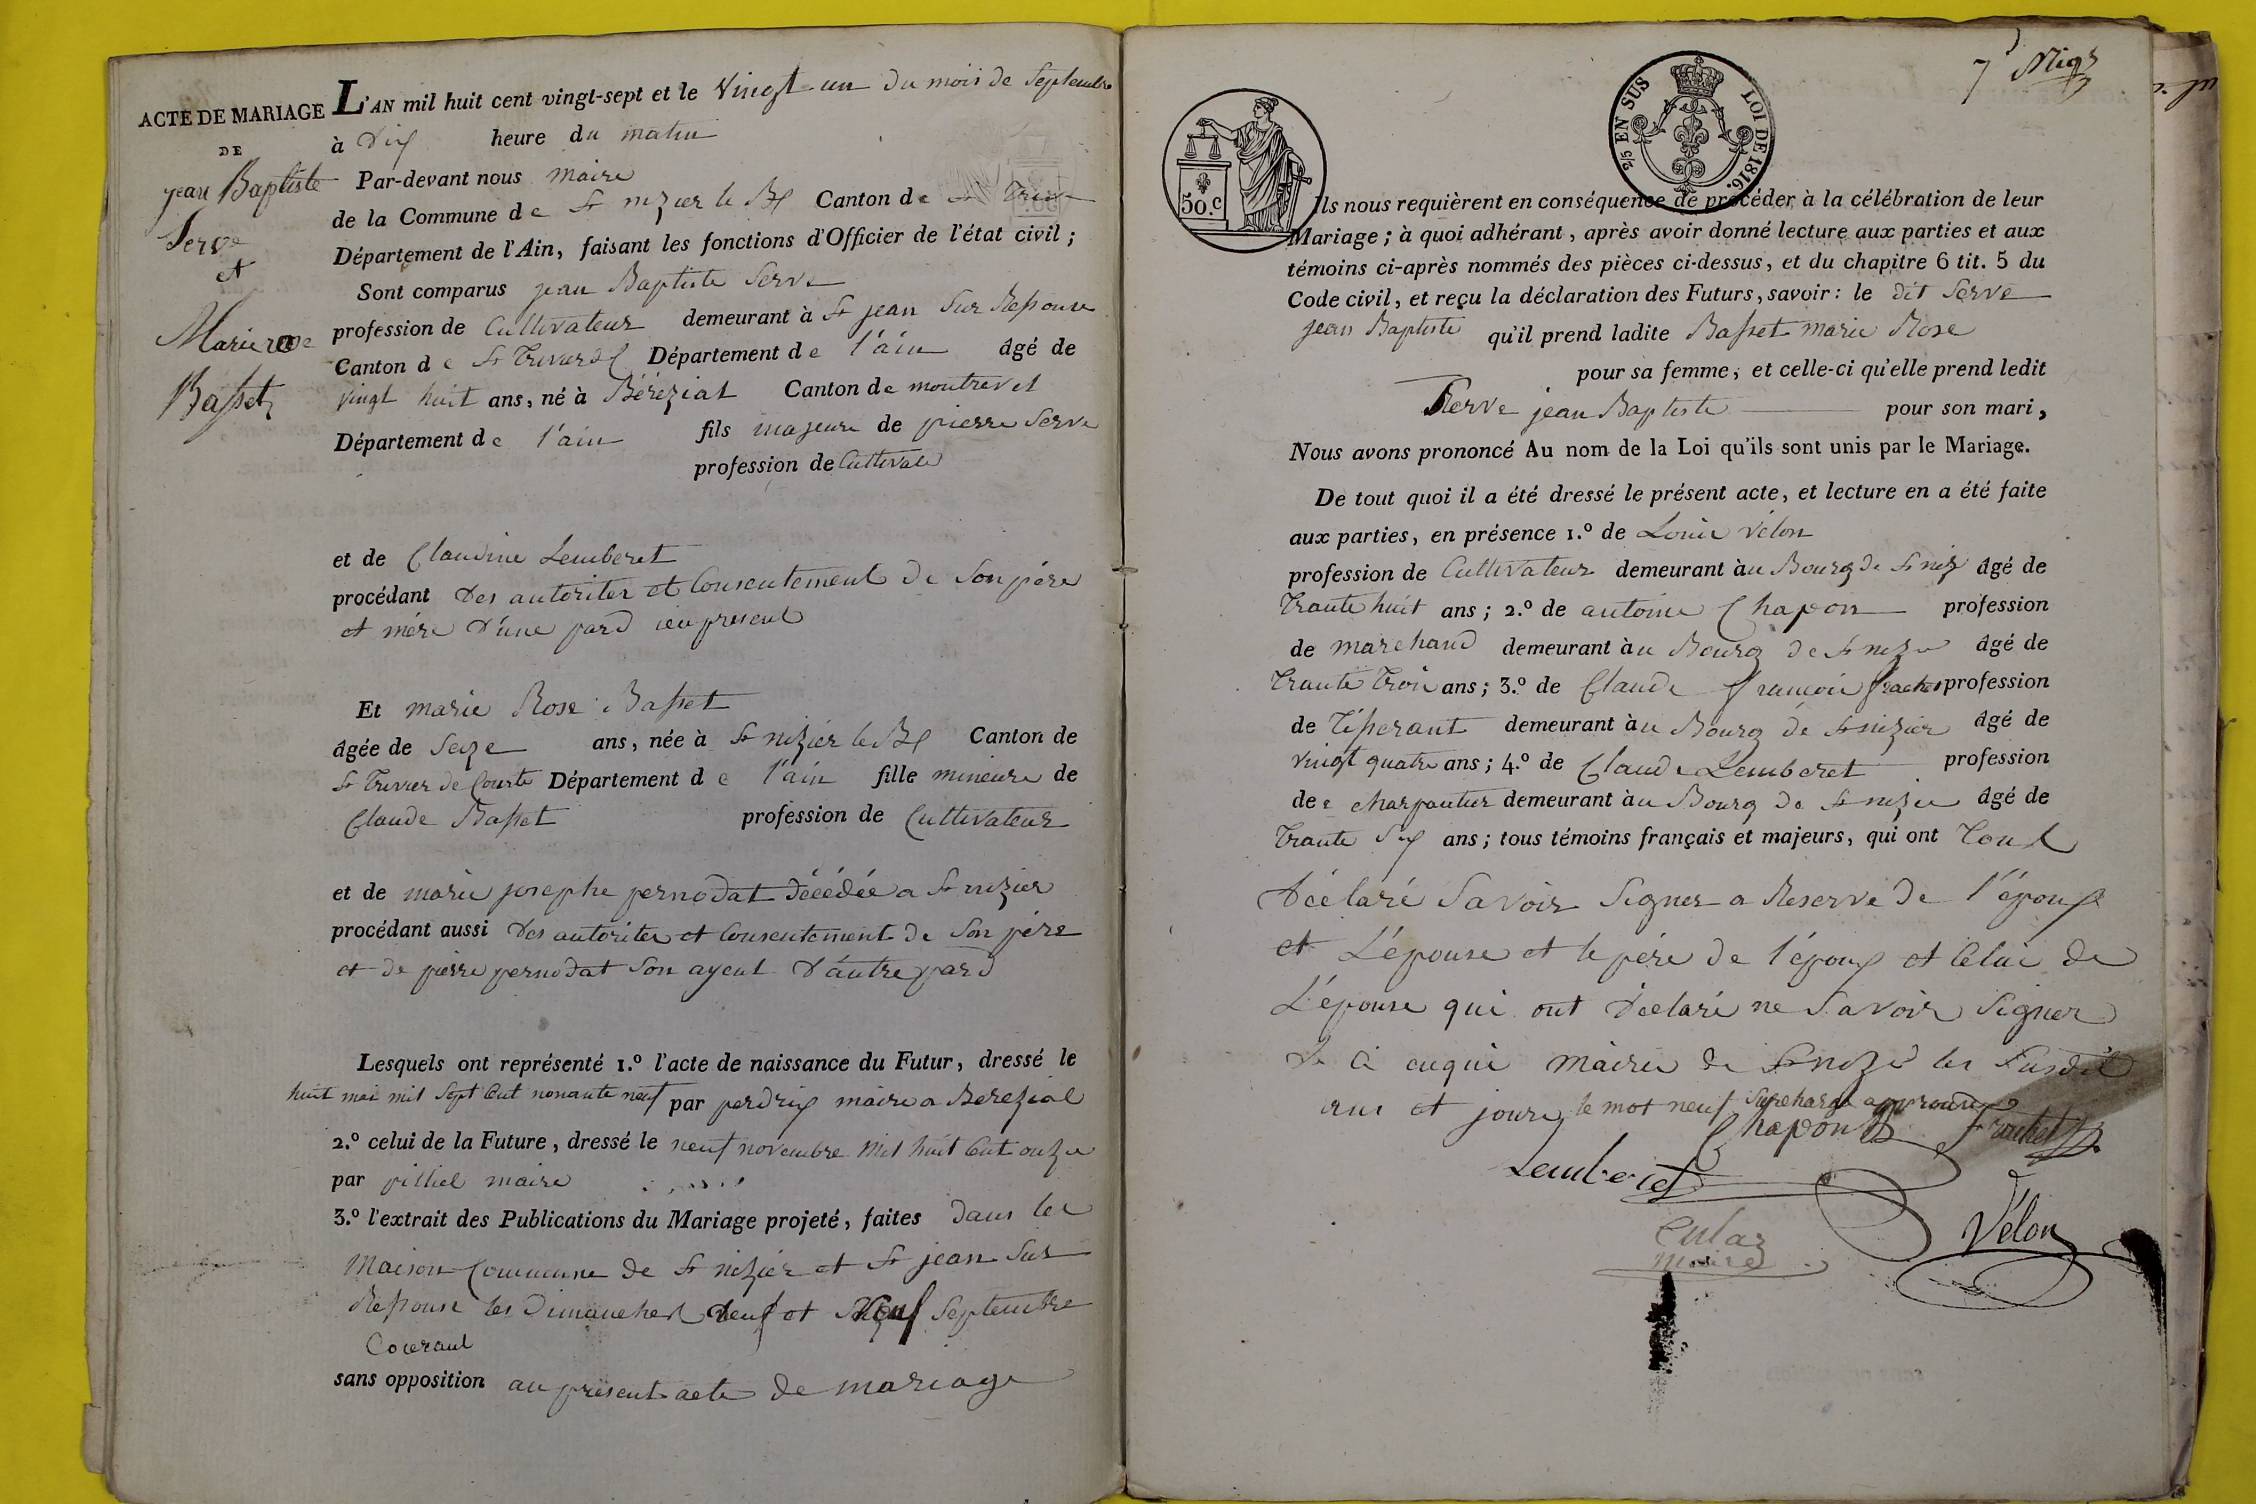 ACTE DE MARIAGE
DE
jean Baptiste
Serve
et
Marie rose
Basset
L'AN mil huit cent vingt-sept et le vingt un du mois de Septembre
à Dix heure du matin
Par-devant nous maire
de la Commune de St nizier le Bx Canton de St Triv
Département de l'Ain, faisant les fonctions d'Officier de l'état civil ;
Sont comparus jean Baptiste Serve
profession de Cultivateur demeurant à St jean Sur Resouse
Canton de St Trivier Département de l'ain âgé de
vingt huit ans, né à Béréziat Canton de montrevel
Département de l'ain fils majeure de pierre Serve
profession de Cultivate
et de Claudine Lemberet
procédant des autoriter et Consentement de Son père
et mère d'une pard ieu present
Et marie Rose Basset
âgée de Seize ans, née à St nizier le Bx Canton de
St Trivier de Courte Département de l'ain fille mineure de
Claude Basset profession de Cultivateur
et de marie josephe pernodat décédée a St nizier
procédant aussi des autoriter et Consentement de Son père
et de pierre pernodat Son ayeul d'autre pard
Lesquels ont représenté 1.º l'acte de naissance du Futur, dressé le
huit mai mil Sept Cent nonante neuf par perdrix maire a Bereziat
2.º celui de la Future, dressé le neuf novembre mil huit Cent onze
par pittiel maire
3.º l'extrait des Publications du Mariage projeté, faites dans les
Maison Commune de St nizier et St jean Sur
Resouse les Dimanches neuf et Septembre
Courant
sans opposition au present acte de mariage
50.c
2/5 EN SUS LOI DE 1816.
Ils nous requièrent en conséquence de procéder à la célébration de leur
Mariage ; à quoi adhérant, après avoir donné lecture aux parties et aux
témoins ci-après nommés des pièces ci-dessus, et du chapitre 6 tit. 5 du
Code civil, et reçu la déclaration des Futurs, savoir : le dit Serve
jean Baptiste qu'il prend ladite Basset marie Rose
pour sa femme, et celle-ci qu'elle prend ledit
Serve jean Baptiste pour son mari,
Nous avons prononcé Au nom de la Loi qu'ils sont unis par le Mariage.
De tout quoi il a été dressé le présent acte, et lecture en a été faite
aux parties, en présence 1.º de Louis Vélon
profession de Cultivateur demeurant àu Bourg de St niz âgé de
Trante huit ans ; 2.º de antoine Chapon profession
de marchand demeurant àu Bourg de St nizie âgé de
Trante Trois ans ; 3.º de Claude françois frachet profession
de Tisserant demeurant àu Bourg de St nizier âgé de
vingt quatre ans ; 4.º de Claude Lemberet profession
de charpantier demeurant àu Bourg de St nizie âgé de
Trante Six ans ; tous témoins français et majeurs, qui ont Tous
déclaré Savoir Signer a Reserve de l'époux
et L'épouse et le père de l'époux et Celui de
L'épouse qui ont déclaré ne Savoir Signer
mairie de St nizie les Susdit
ans et jours le mot neuf Surcharge approuvé
Chapon Frachet
Lemberet
Velon
Culaz
Maire